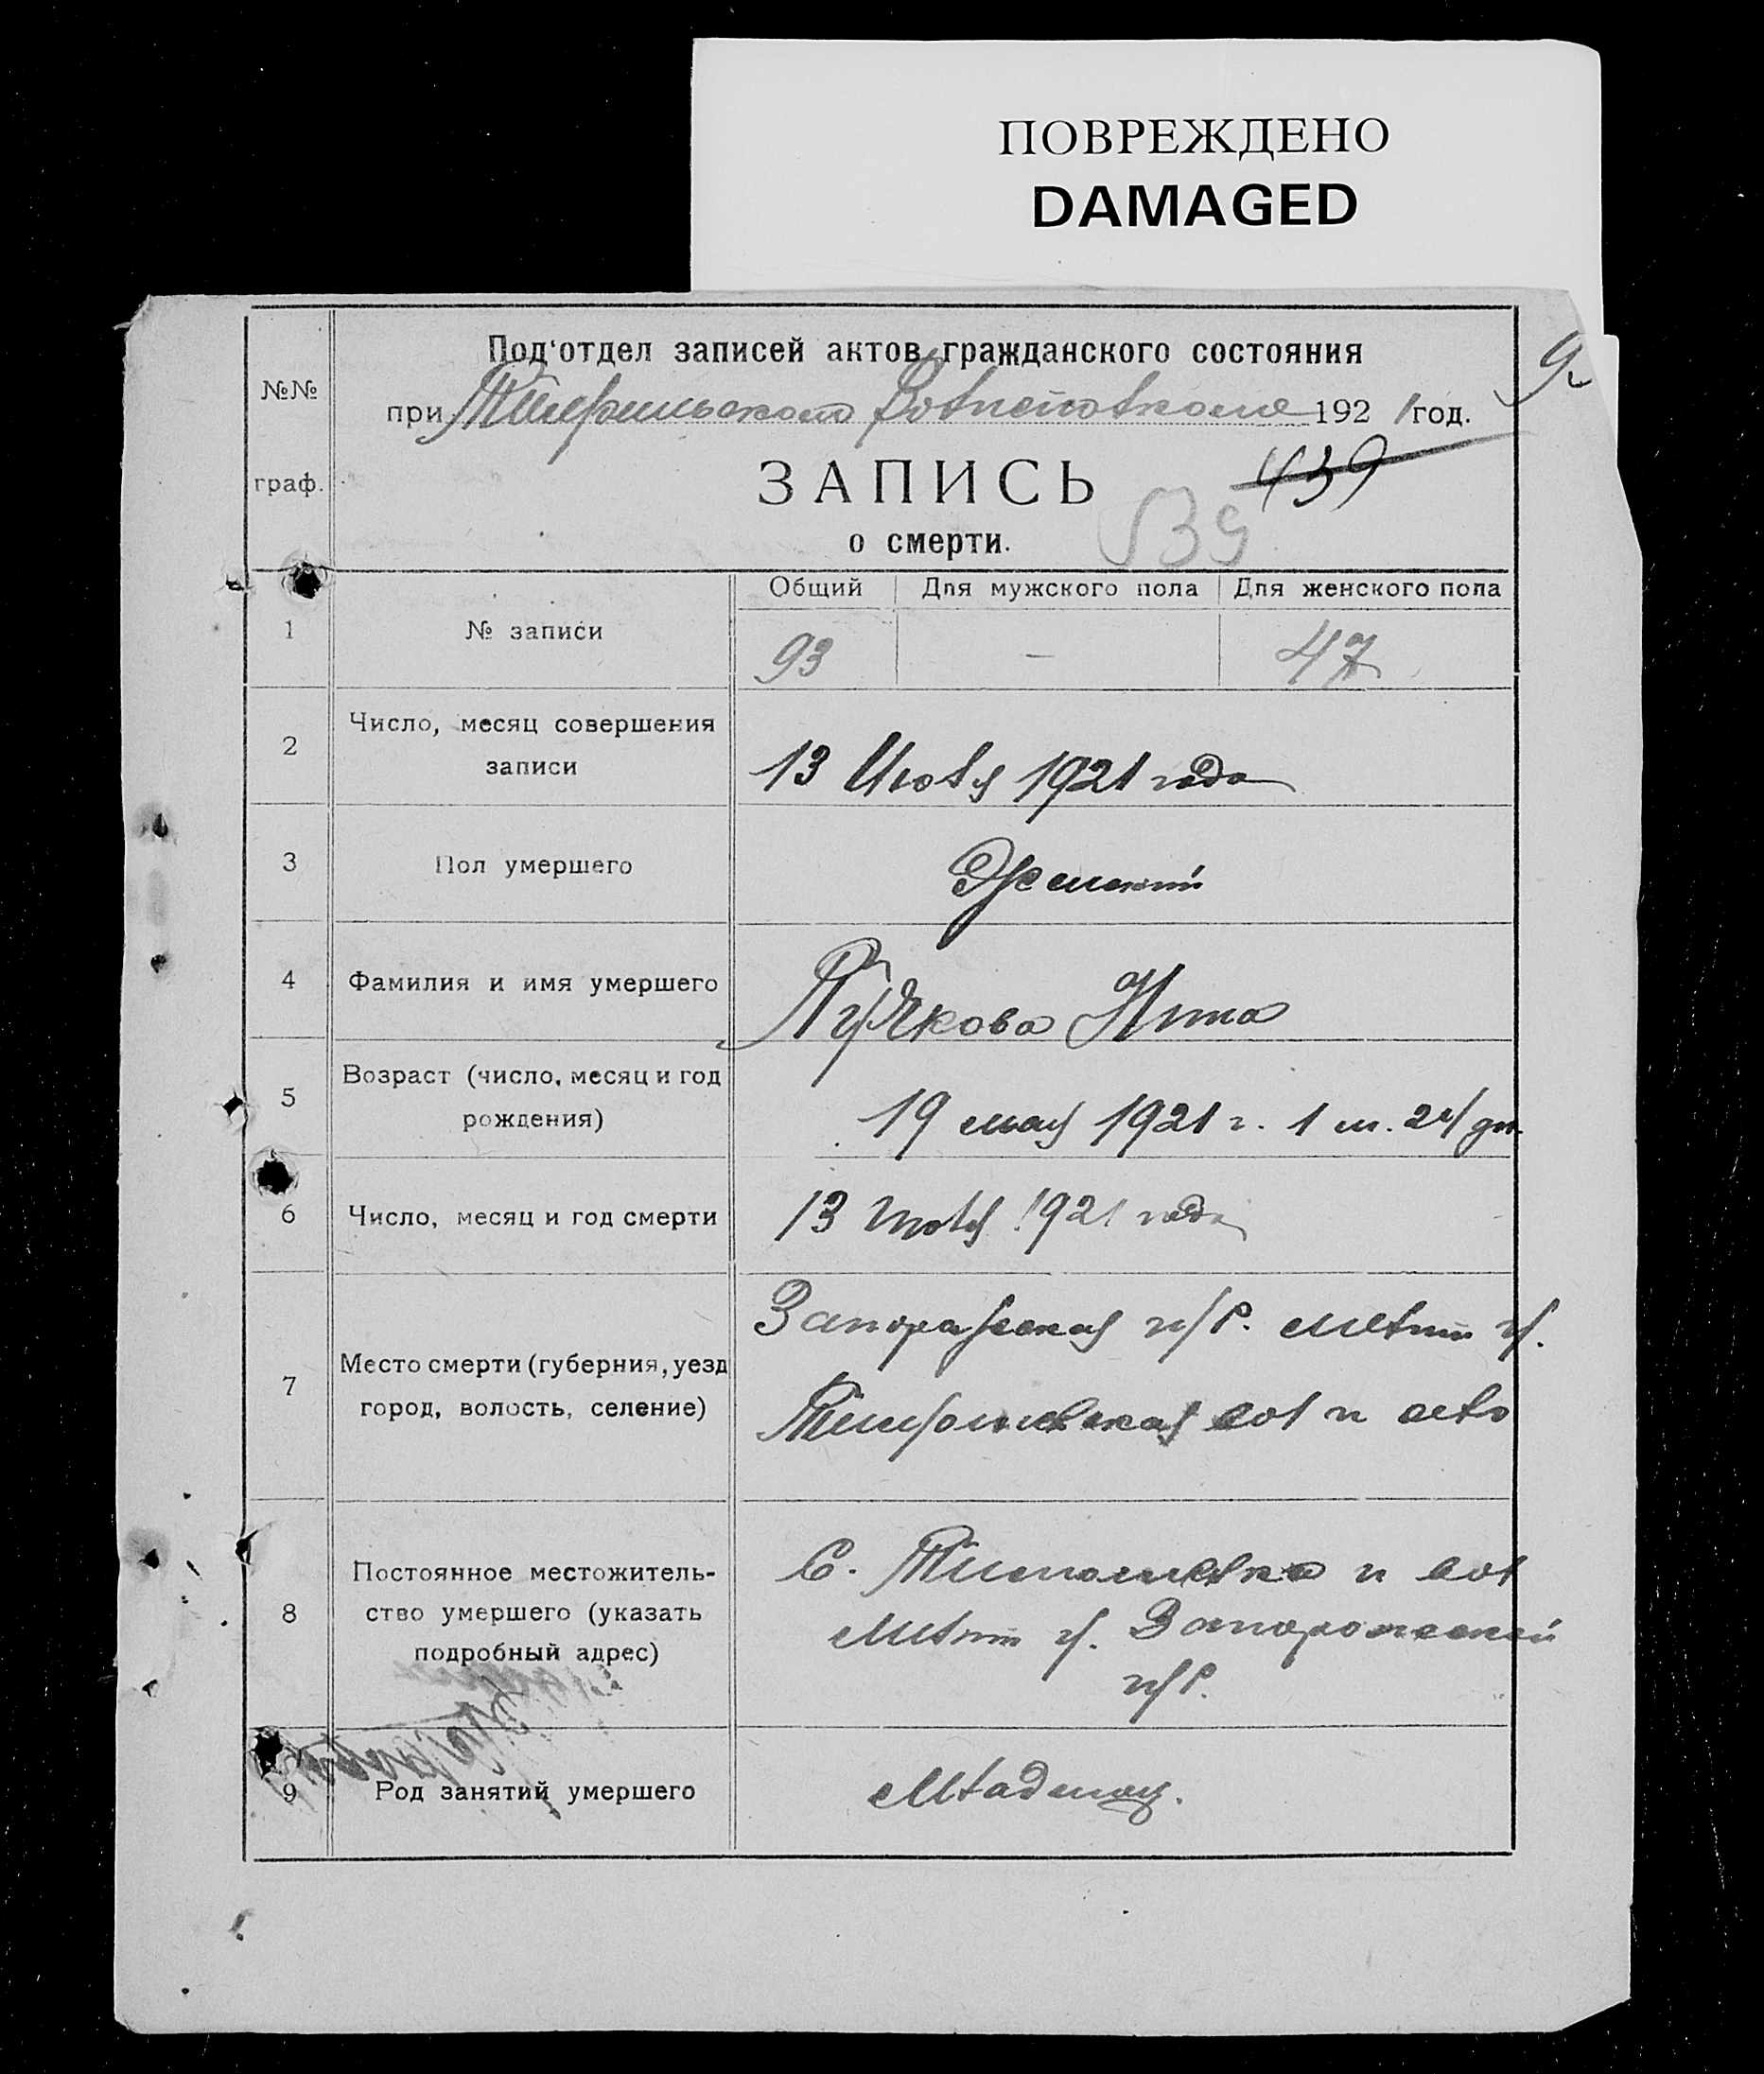 ПОВРЕЖДЕНО
DAMAGED
9
Под'отдел записей актов гражданского состояния
№№
при Волисполкоме 1921 год.
граф.
ЗАПИСЬ 439
539
о смерти.
Общий Для мужского пола Для женского пола
1 № записи 93 — 47
2 Число, месяц совершения
записи
13 Июля 1921 года
3 Пол умершего Женский
4 Фамилия и имя умершего Пучкова Нина
5 Возраст (число, месяц и год
рождения)
19 мая 1921 г. 1 м. 24 дн.
6 Число, месяц и год смерти 13 Июля 1921 года
7 Место смерти (губерния, уезд
город, волость, селение)
Запорожская г/б. Мелит у.
Тимошевская вол и село
8 Постоянное местожитель-
ство умершего (указать
подробный адрес)
С. Тимошевка и вол
Мелит у. Запорожской
г/б.
9 Род занятий умершего Младенец.